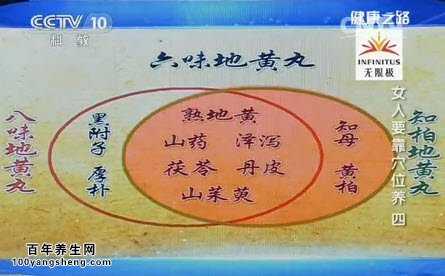 CCTV 10
科教
健康之路
INFINITUS
无限极
六味地黄丸
八味地黄丸
黑附子 厚朴
熟地黄
山药 泽泻
茯苓 丹皮
山茱萸
知母 黄柏
知柏地黄丸
女人要靠穴位养 四
百年养生网
100yangsheng.com